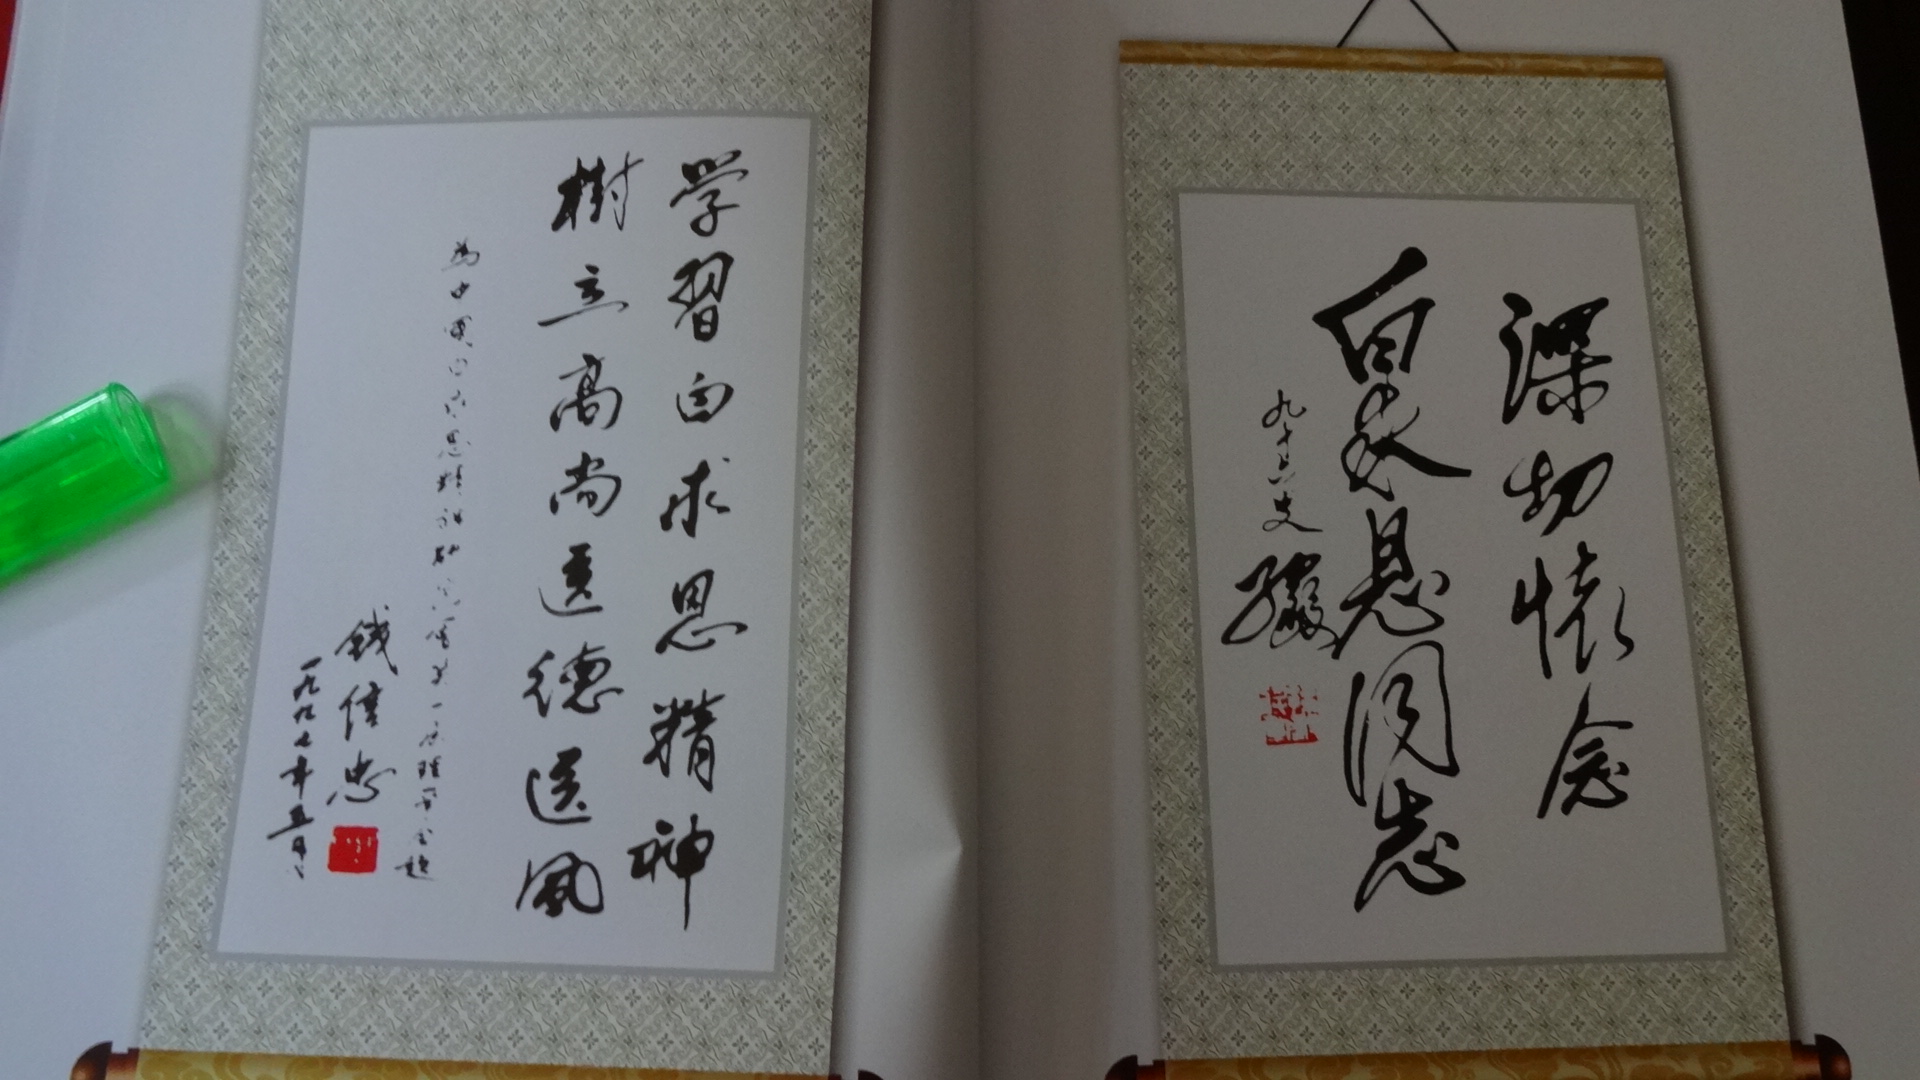 学習白求恩精神
樹立高尚医德医風
為中国白求恩精神研究會第一屆理事会題
錢信忠
一九九七年五月
深切懷念
白求恩同志
九十六叟